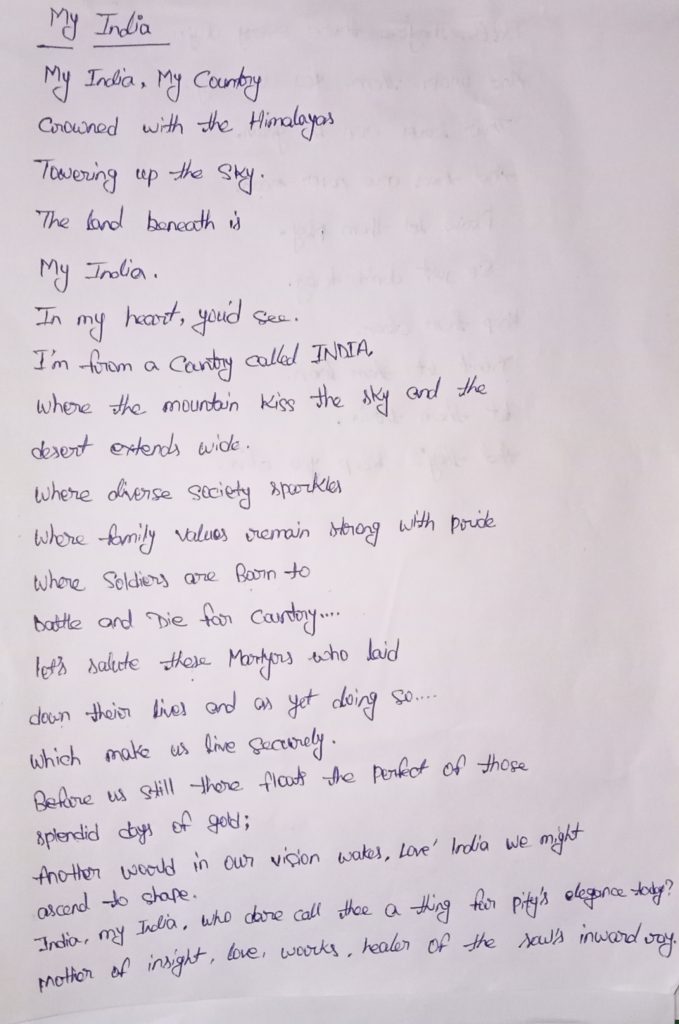 My India
My India, My Country
Crowned with the Himalayas
Towering up the Sky.
The land beneath is
My India.
In my heart, you'd see.
I'm from a Country called INDIA
where the mountain kiss the sky and the
desert extends wide.
where diverse society sparkles
where family values remain strong with pride
where Soldiers are Born to
battle and Die for Country....
let's salute these Martyrs who laid
down their lives and as yet doing so....
which make us live securely.
Before us still there floats the perfect of those
splendid days of gold;
Another world in our vision wakes, Love' India we might
ascend to shape.
India, my India, who dare call thee a thing for pity's elegance today?
mother of insight, love, works, healer of the soul's inward ray.